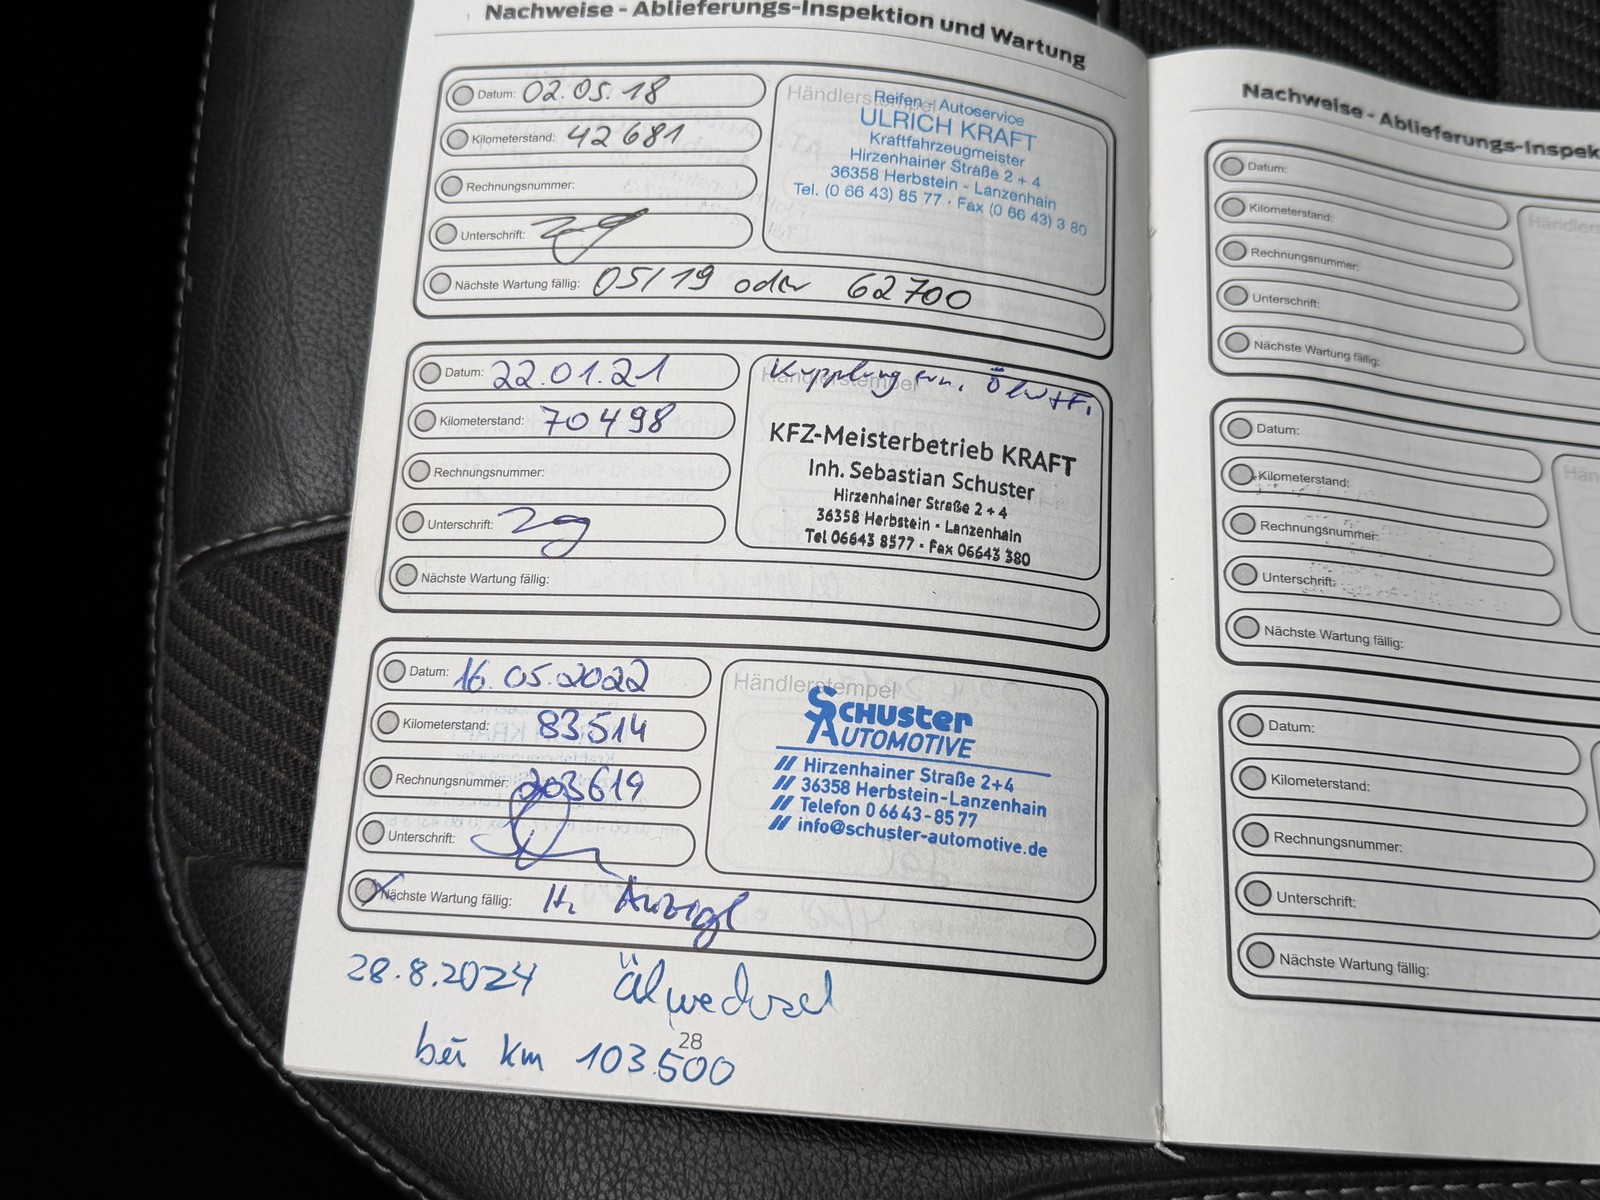 Nachweise - Ablieferungs-Inspektion und Wartung
Datum: 02.05.18
Kilometerstand: 42681
Rechnungsnummer:
Unterschrift:
Nächste Wartung fällig: 05/19 oder 62700
Händlerstempel
Reifen - Autoservice
ULRICH KRAFT
Kraftfahrzeugmeister
Hirzenhainer Straße 2 + 4
36358 Herbstein - Lanzenhain
Tel. (0 66 43) 85 77 · Fax (0 66 43) 3 80
Datum: 22.01.21
Kilometerstand: 70498
Rechnungsnummer:
Unterschrift:
Nächste Wartung fällig:
Händlerstempel
Kupplung ern. Ölw+Fi
KFZ-Meisterbetrieb KRAFT
Inh. Sebastian Schuster
Hirzenhainer Straße 2 + 4
36358 Herbstein - Lanzenhain
Tel 06643 8577 - Fax 06643 380
Datum: 16.05.2022
Kilometerstand: 83514
Rechnungsnummer: 203619
Unterschrift:
Nächste Wartung fällig: lt. Anzeige
Händlerstempel
SCHUSTER
AUTOMOTIVE
// Hirzenhainer Straße 2+4
// 36358 Herbstein-Lanzenhain
// Telefon 0 66 43 - 85 77
// info@schuster-automotive.de
28.8.2024 Ölwechsel
bei km 103.500
28
Nachweise - Ablieferungs-Inspek
Datum:
Kilometerstand:
Rechnungsnummer:
Unterschrift:
Nächste Wartung fällig:
Händlers
Datum:
Kilometerstand:
Rechnungsnummer:
Unterschrift:
Nächste Wartung fällig:
Hän
Datum:
Kilometerstand:
Rechnungsnummer:
Unterschrift:
Nächste Wartung fällig: